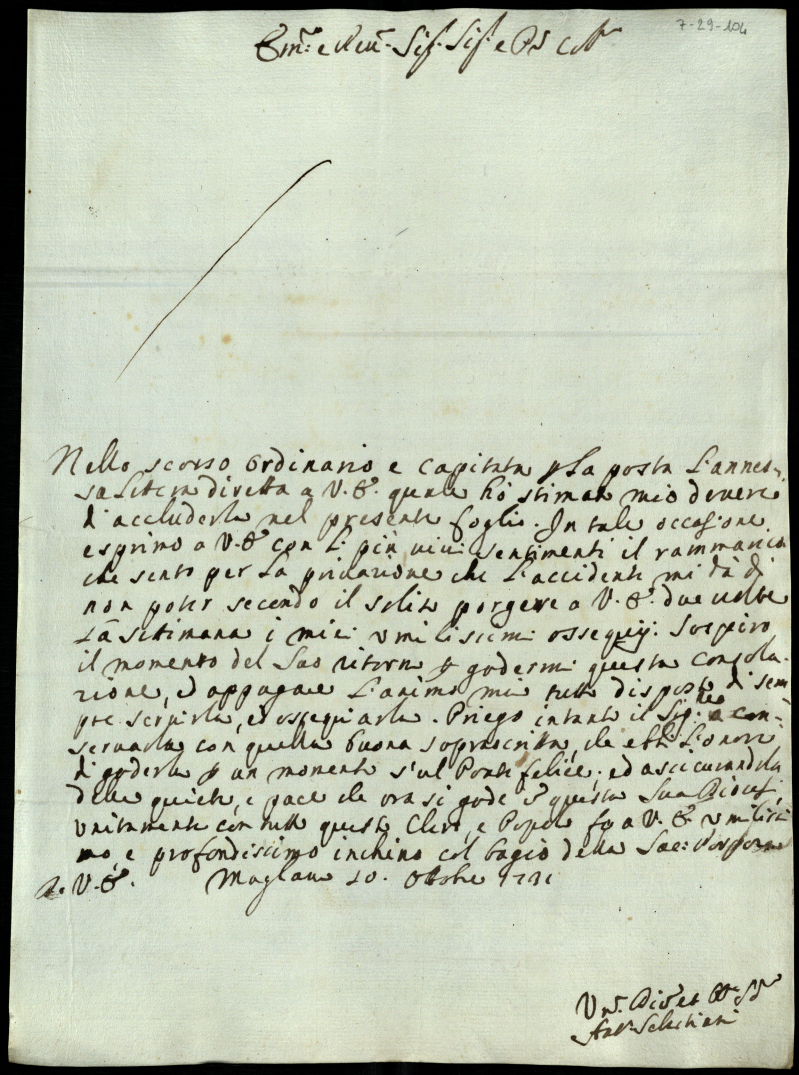 7-29-104
Em: e Reu: Sig: Sig: e Pñ Col
Nello scorso Ordinario e capitata p La posta L'annes-
sa Lettera diretta a V. E. quale hò stimato mio dovere
d'accluderla nel presente foglio. In tale occasione
esprimo a V. E. con Li più vivi sentimenti il rammarico
che sento per La privazione che L'accidente mi dà di
non poter secondo il solito porgere a V. E. due volte
La settimana i miei umilissimi ossequij. Sospiro
il momento del Suo ritorno p godermi questa Consola-
zione, ed appagare L'animo mio tutto disposto di sem
pre servirla, ed ossequiarla. Priego intanto il Sig:re a con-
servarla con quella buona soprascritta, che ebbi L'onore
di goderla p un momento s'ul Ponte felice; ed assicurandola
della quiete, e pace che ora si gode in questa Sua Diocesi,
unitamente con tutto questo Clero, e Popolo fo a V. E. umilissi
mo, e profondissimo inchino col bagio della Sac: Porpora
Di V. E. Magliano 10. Ottobre 1731
Um. Div et Obb S
Ant Sebastiani